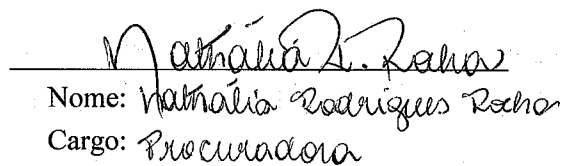 Nathália R. Rocha
Nome: Nathália Rodrigues Rocha
Cargo: Procuradora